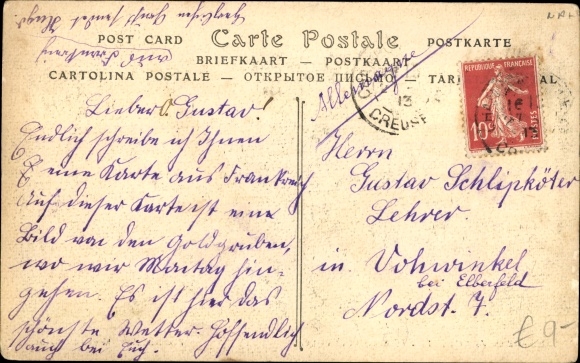 Herzlichen Gruß sendet Hugo
aus Frankreich
POST CARD Carte Postale POSTKARTE
BRIEFKAART — POSTKAART
CARTOLINA POSTALE — ОТКРЫТОЕ ПИСЬМО —
Allemagne
Lieber Gustav!
Endlich schreibe ich Ihnen
eine Karte aus Frankreich
Auf dieser Karte ist eine
Bild von den Goldgruben,
wo wir Montag hin-
gehen. Es ist hier das
schönste Wetter. Hoffendlich
auch bei Euch.
RÉPUBLIQUE FRANÇAISE
10c
POSTES
CREUSE
13
16
Herrn
Gustav Schlipköter
Lehrer
in Vohwinkel
bei Elberfeld
Nordst. 7.
€ 9-